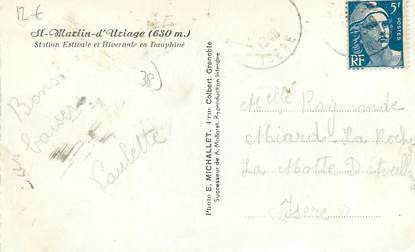 12€
St-Martin-d'Uriage (630 m.)
Station Estivale et Hivernale en Dauphiné
38
Bons
baisers
Paulette
Photo E. MICHALLET, 4 rue Colbert, Grenoble
Successeur de A. Mollaret. Reproduction interdite
ISERE
5F
POSTES
RF
Melle Raymonde
Micard La Roche
La Motte D
Isère